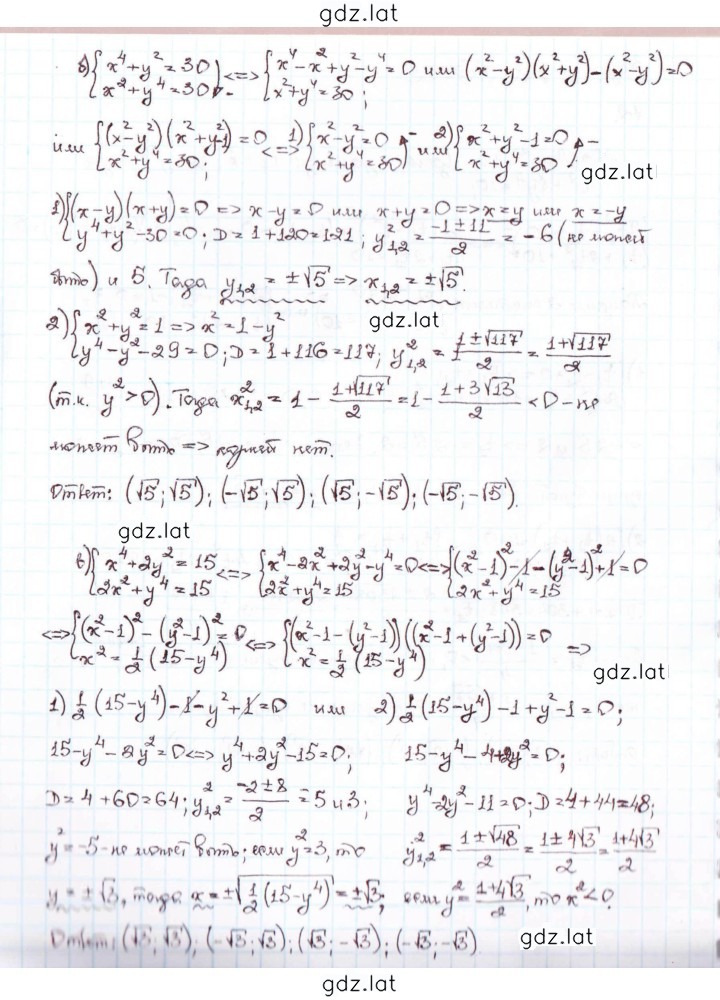 gdz.lat
б) { x⁴+y²=30 x²+y⁴=30 |- <=> { x⁴-x²+y²-y⁴=0 x²+y⁴=30; или (x²-y²)(x²+y²)-(x²-y²)=0
или { (x²-y²)(x²+y²-1)=0 x²+y⁴=30; <=> 1) { x²-y²=0 x²+y⁴=30 или 2) { x²+y²-1=0 x²+y⁴=30
gdz.lat
1) { (x-y)(x+y)=0 => x-y=0 или x+y=0 => x=y или x=-y
y⁴+y²-30=0; D=1+120=121; y²₁,₂ = (-1±11)/2 = -6 (не может
быть) и 5. Тогда y₁,₂=±√5 => x₁,₂=±√5.
gdz.lat
2) { x²+y²=1 => x²=1-y²
y⁴-y²-29=0; D=1+116=117; y²₁,₂ = (1±√117)/2 = (1+√117)/2
(т.к. y²>0). Тогда x²₁,₂ = 1 - (1+√117)/2 = 1 - (1+3√13)/2 < 0 - не
может быть => корней нет.
Ответ: (√5; √5); (-√5; √5); (√5; -√5); (-√5; -√5).
gdz.lat
в) { x⁴+2y²=15 2x²+y⁴=15 <=> { x⁴-2x²+2y²-y⁴=0 2x²+y⁴=15 <=> { (x²-1)²-1-(y²-1)²+1=0 2x²+y⁴=15
<=> { (x²-1)²-(y²-1)²=0 x²=½(15-y⁴) <=> { (x²-1-(y²-1))((x²-1+(y²-1))=0 x²=½(15-y⁴) =>
gdz.lat
1) ½(15-y⁴)-1-y²+1=0 или 2) ½(15-y⁴)-1+y²-1=0;
15-y⁴-2y²=0 <=> y⁴+2y²-15=0; 15-y⁴-4+2y²=0;
D=4+60=64; y²₁,₂ = (-2±8)/2 = -5 и 3; y⁴-2y²-11=0; D=4+44=48;
y²=-5 - не может быть; если y²=3, то y²₁,₂ = (1±√48)/2 = (1±4√3)/2 = (1+4√3)/2
y=±√3, тогда x=±√(½(15-y⁴))=±√3; если y²=(1+4√3)/2, то x²<0.
Ответ: (√3; √3); (-√3; √3); (√3; -√3); (-√3; -√3)
gdz.lat
gdz.lat